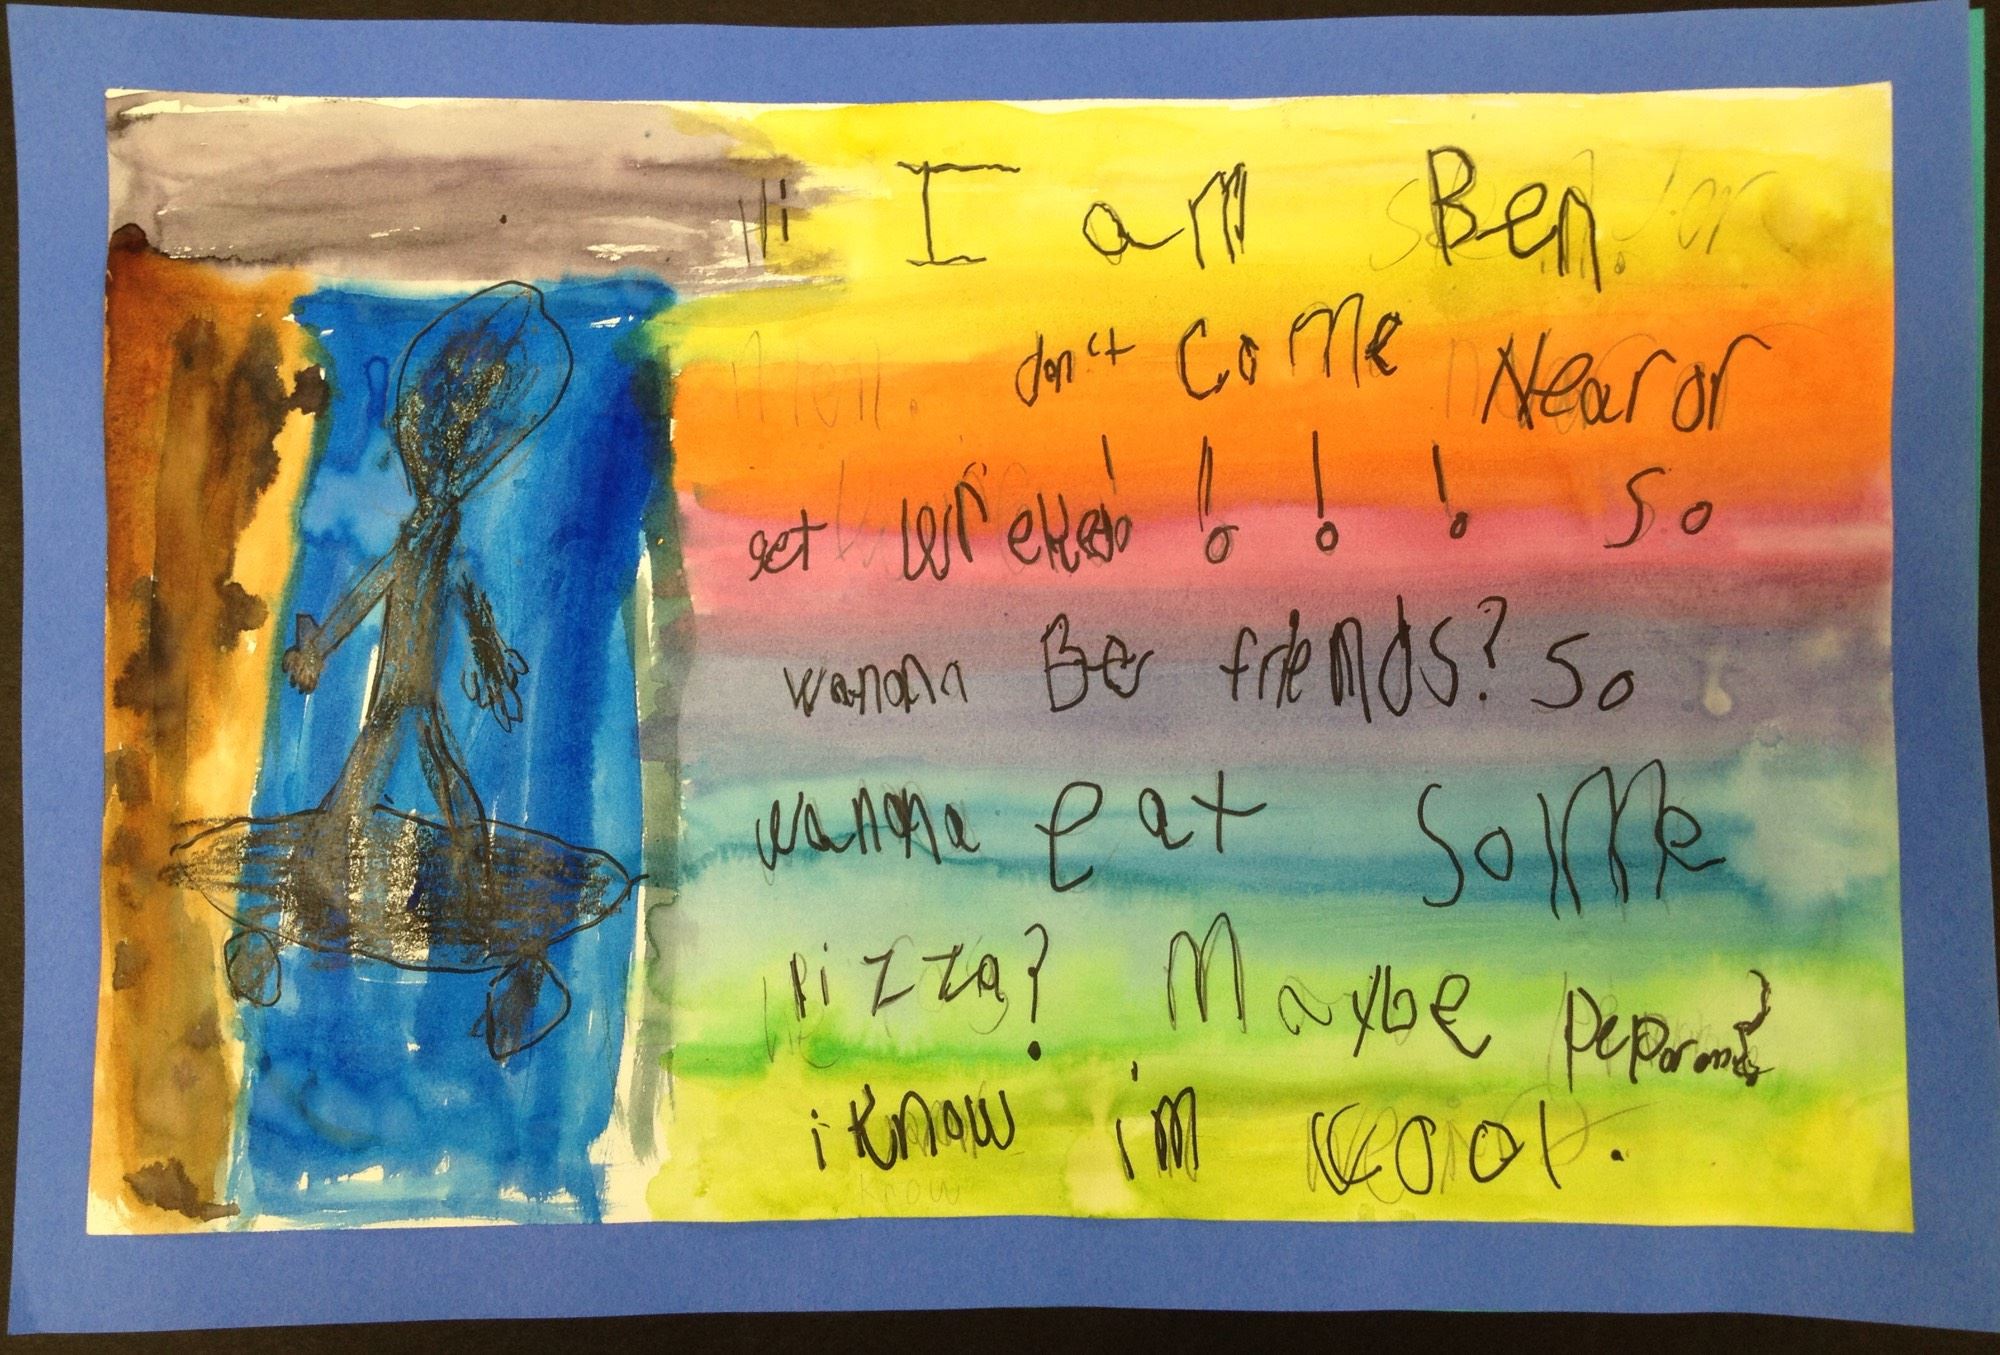 Hi I am Ben
don't come Near or
get wreked! ! ! ! So
wanna Be friends? So
wanna eat Some
pizza? Maybe
i know im